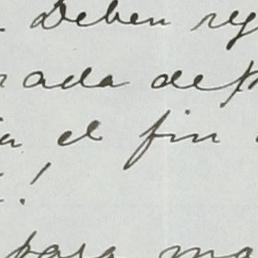 . Deben reg
rada de
en el fin
!
para ma